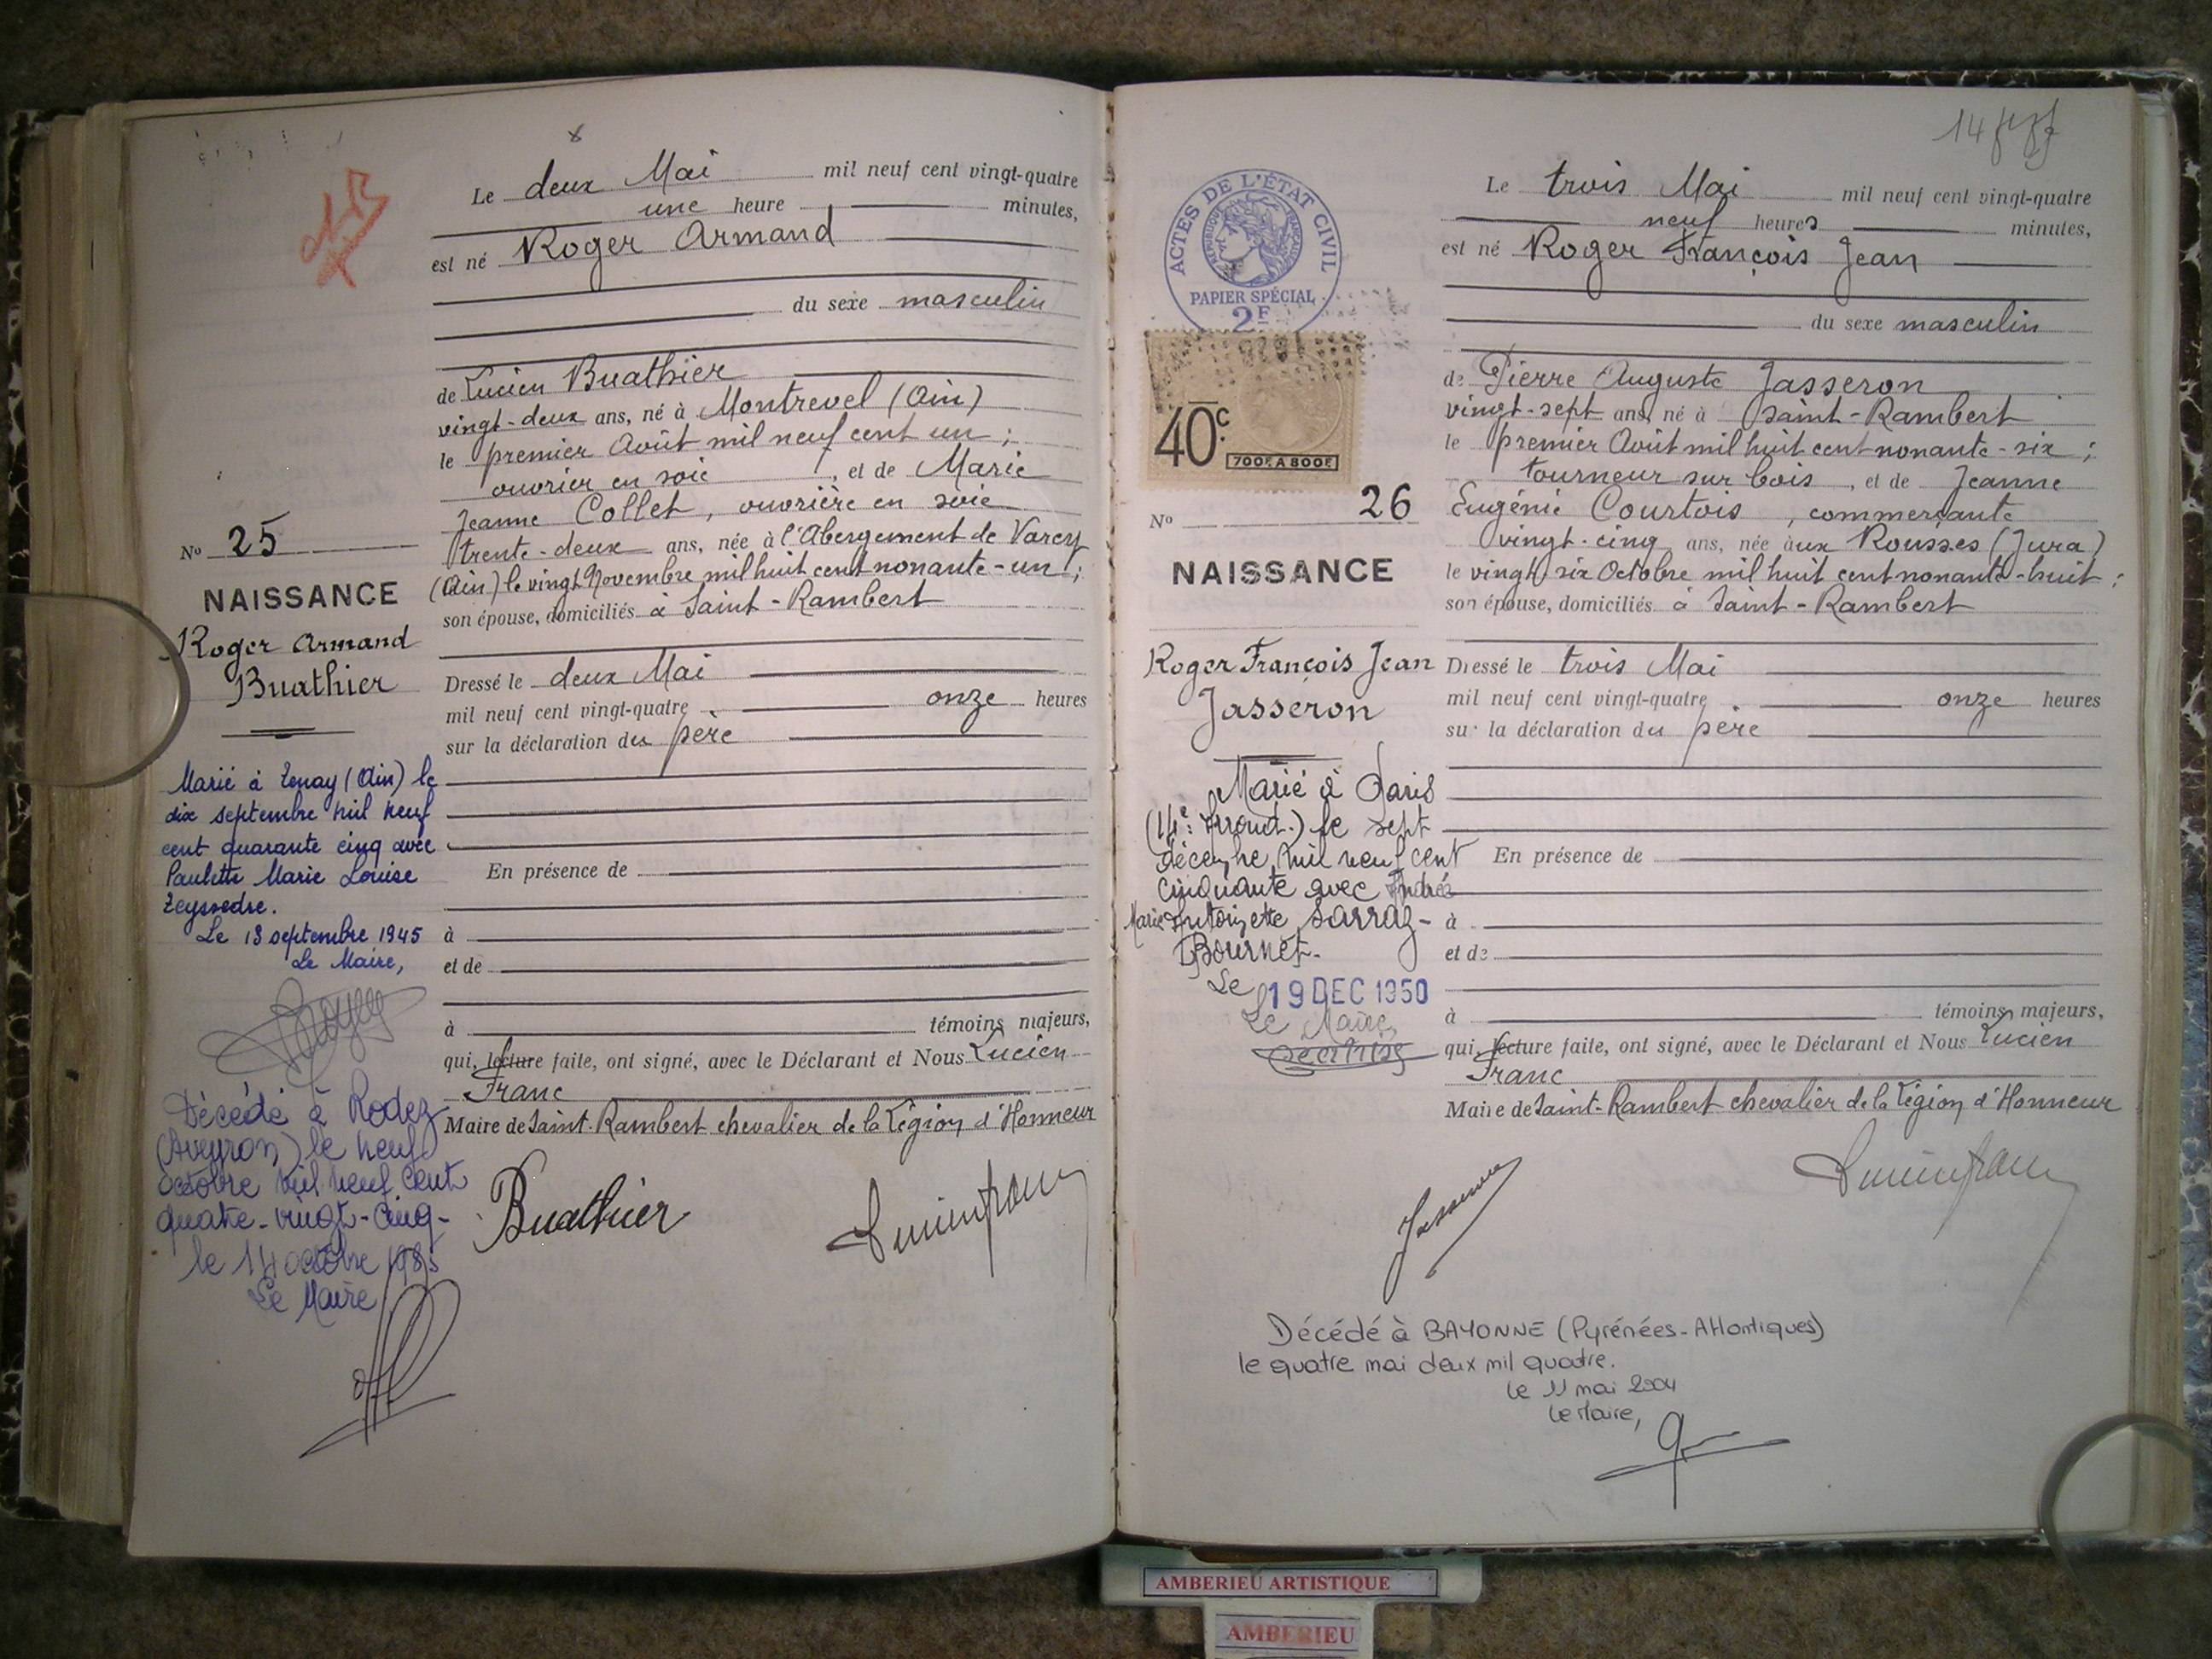 Le deux Mai mil neuf cent vingt-quatre
une heure minutes,
est né Roger Armand
du sexe masculin
de Lucien Buathier
vingt-deux ans, né à Montrevel (Ain)
le premier Août mil neuf cent un ;
ouvrier en soie, et de Marie
Jeanne Collet, ouvrière en soie
trente-deux ans, née à l'Abergement de Varey
(Ain) le vingt Novembre mil huit cent nonante-un ;
son épouse, domiciliés à Saint-Rambert
Dressé le deux Mai
mil neuf cent vingt-quatre onze heures
sur la déclaration du père
En présence de
à
et de
à témoins majeurs,
qui, lecture faite, ont signé, avec le Déclarant et Nous Lucien
Franc
Maire de Saint-Rambert chevalier de la Légion d'Honneur
Buathier
No 25
NAISSANCE
Roger Armand
Buathier
Marié à Tenay (Ain) le
dix septembre mil neuf
cent quarante cinq avec
Paulette Marie Louise
Teyssedre.
Le 13 septembre 1945
Le Maire,
Décédé à Rodez
(Aveyron) le neuf
octobre mil neuf cent
quatre-vingt-cinq-
le 14 octobre 1985
Le Maire
ACTES DE L'ÉTAT CIVIL
RÉPUBLIQUE FRANÇAISE
PAPIER SPÉCIAL
2F
40c.
700F A 800F
No 26
NAISSANCE
Roger François Jean
Jasseron
Marié à Paris
(14e Arrondt.) le sept
décembre mil neuf cent
cinquante avec Andrée
Marie Antoinette Sarraz-
Bournet-
Le 19 DEC 1950
Le Maire,
Le trois Mai mil neuf cent vingt-quatre
neuf heures minutes,
est né Roger François Jean
du sexe masculin
de Pierre Auguste Jasseron
vingt-sept ans, né à Saint-Rambert
le premier Août mil huit cent nonante-six ;
tourneur sur bois, et de Jeanne
Eugénie Courtois, commerçante
vingt-cinq ans, née aux Rousses (Jura)
le vingt six Octobre mil huit cent nonante-huit ;
son épouse, domiciliés à Saint-Rambert
Dressé le trois Mai
mil neuf cent vingt-quatre onze heures
sur la déclaration du père
En présence de
à
et de
à témoins majeurs,
qui, lecture faite, ont signé, avec le Déclarant et Nous Lucien
Franc
Maire de Saint-Rambert chevalier de la Légion d'Honneur
Jasseron
Décédé à BAYONNE (Pyrénées-Atlantiques)
le quatre mai deux mil quatre.
le 11 mai 2004
Le Maire,
AMBERIEU ARTISTIQUE
AMBERIEU